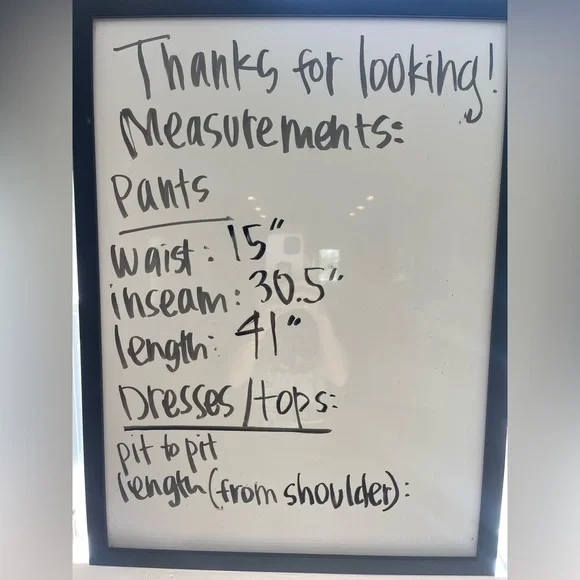 Thanks for looking!
Measurements:
Pants
waist: 15"
inseam: 30.5"
length: 41"
Dresses/tops:
pit to pit
length (from shoulder):